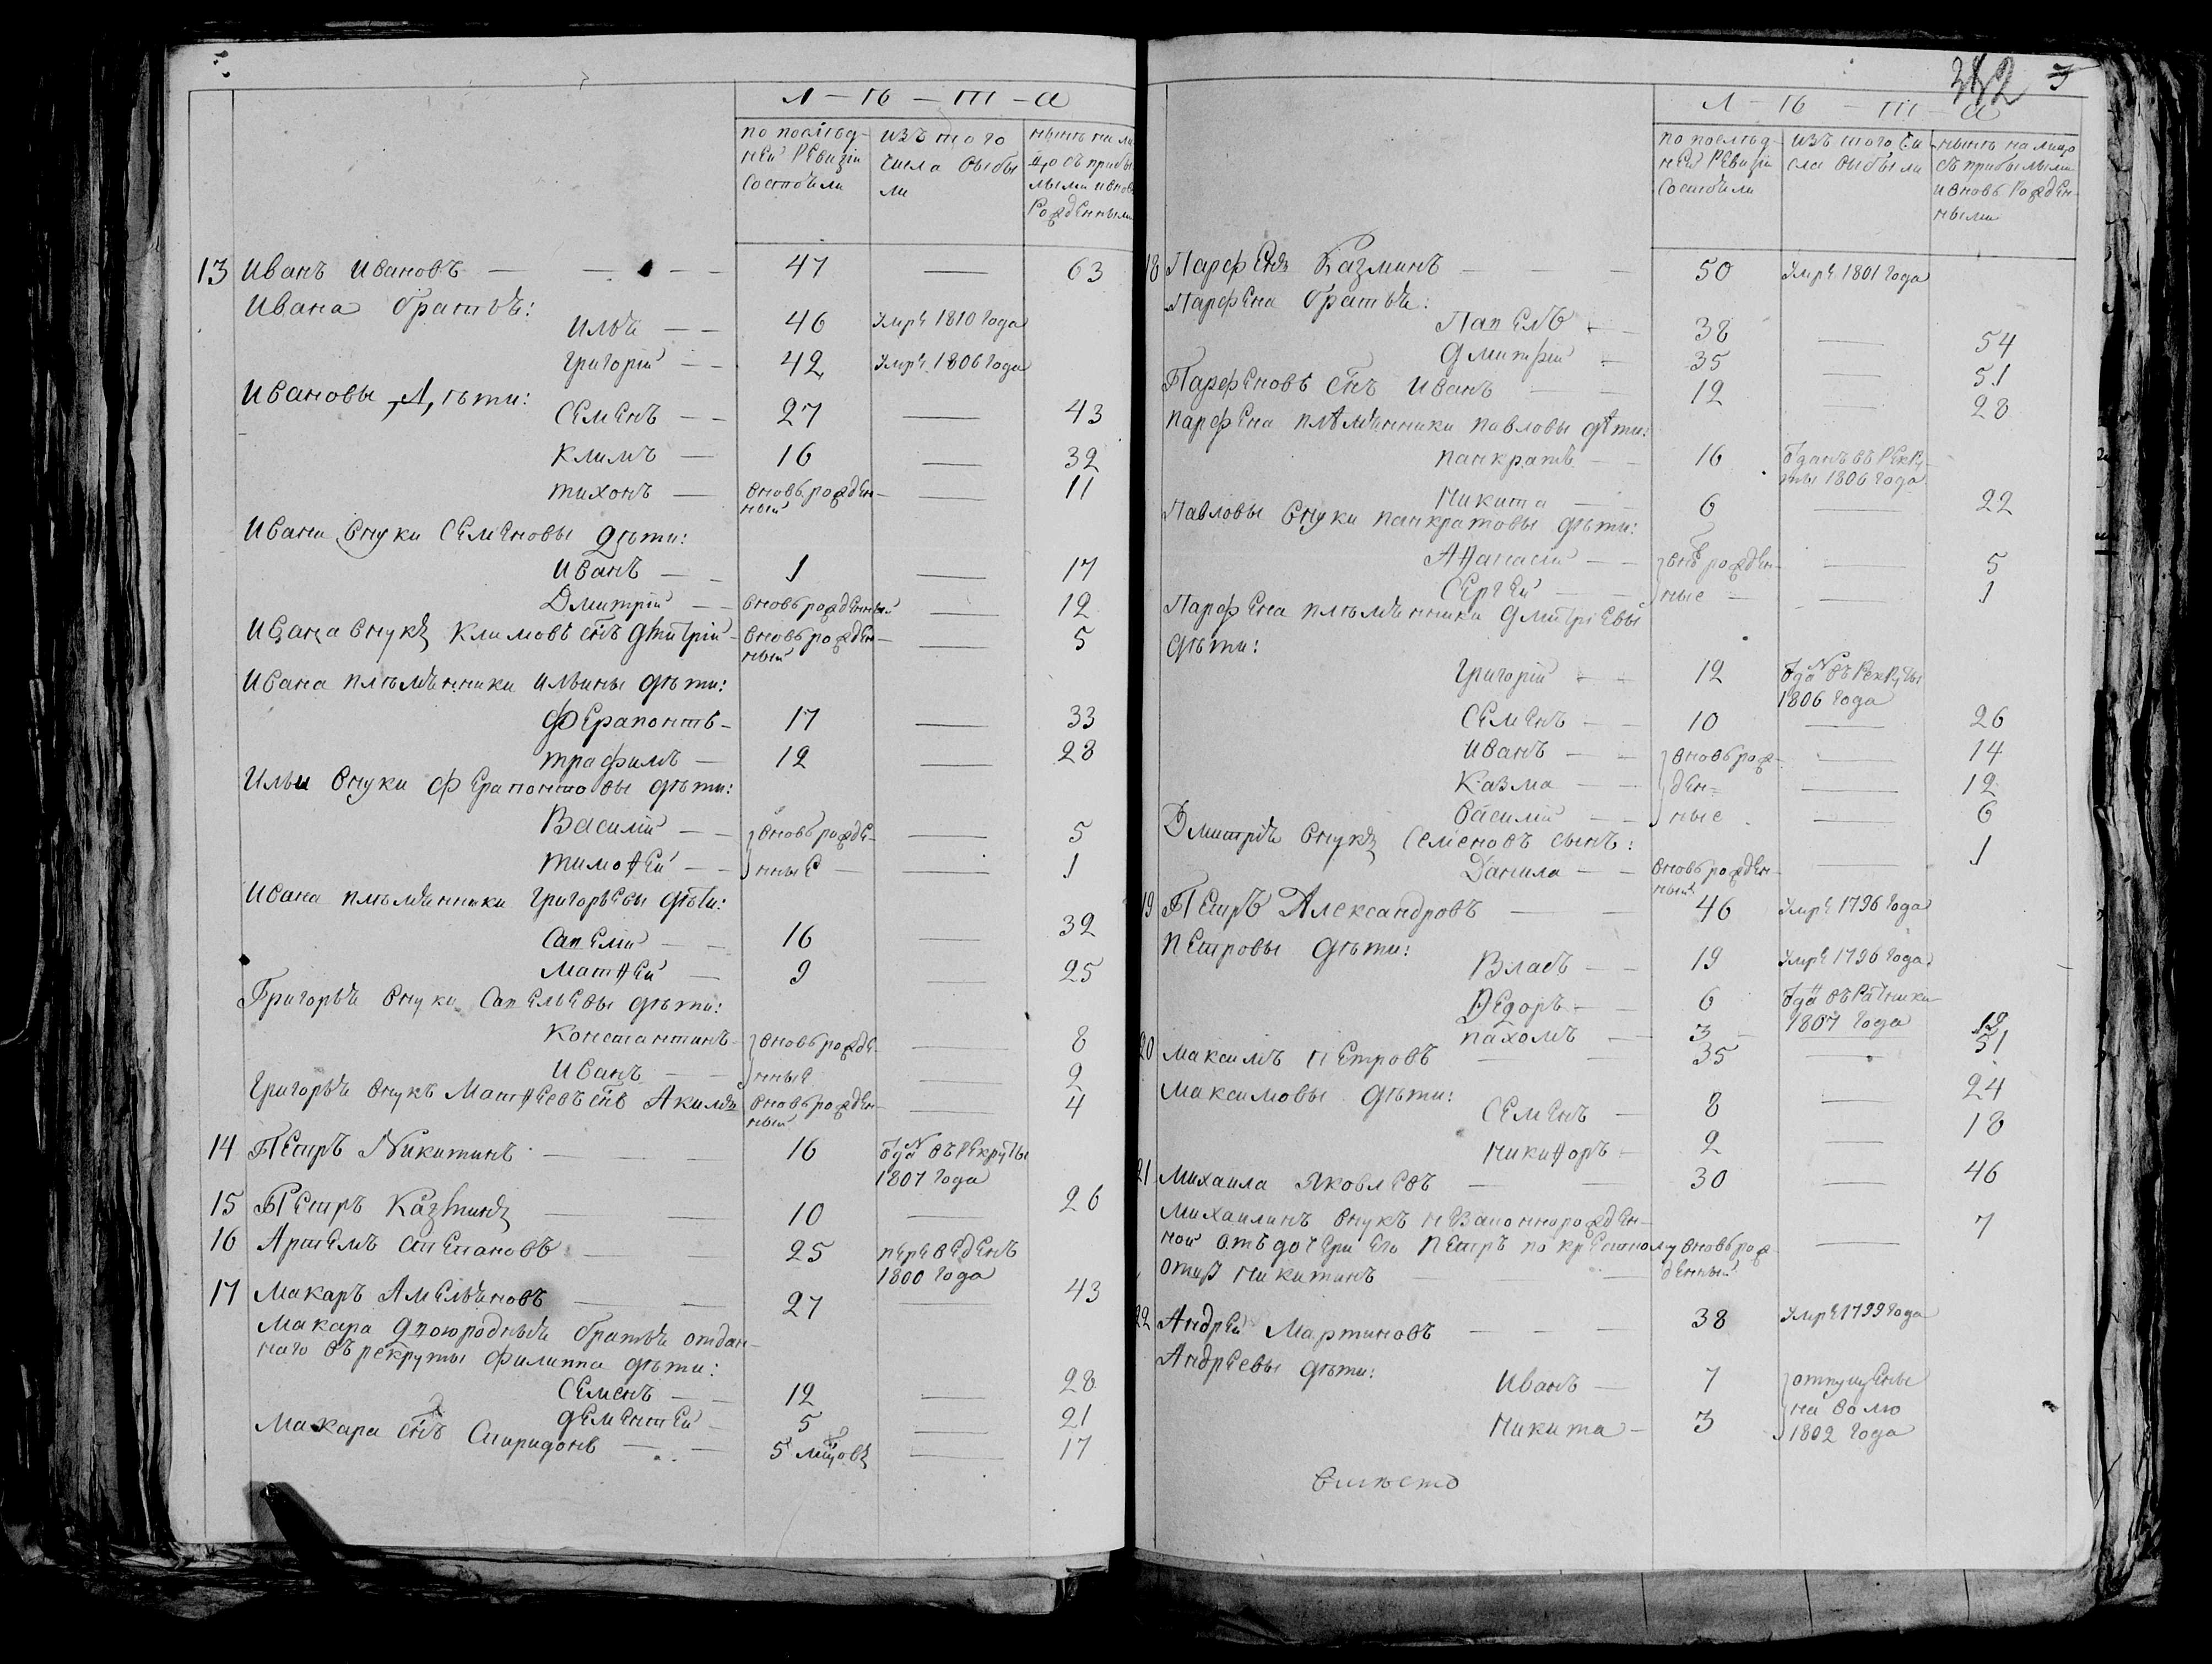 Л - Ѣ - Т - А
по послѣд- изъ того нынѣ на ли
ней ревизіи числа выбы цо съ прибы
состояли ли лыми и внов
рожденными
13 Иванъ Ивановъ — 47 — 63
Ивана братья:
Илья — 46 умре 1810 года
Григорій — 42 умре 1806 года
Ивановы дѣти:
Семенъ — 27 — 43
Климъ — 16 — 32
Тихонъ — вновь рожден- — 11
ный
Ивана внуки Семеновы дѣти:
Иванъ — 1 — 17
Дмитрій — вновь рожденный — 12
Ивана внукъ Климовъ сنъ Дмитрій вновь рожден- — 5
ный
Ивана племянники Ильины дѣти:
Ферапонтъ — 17 — 33
Трафимъ — 12 — 28
Ильи внуки Ферапонтовы дѣти:
Василій — вновь рожде- — 5
Тимоѳей — нные — 1
Ивана племянники Григорьевы дѣти:
Савелій — 16 — 32
Матѳей — 9 — 25
Григорья внуки Савельевы дѣти:
Константинъ вновь рожде- — 8
Иванъ — нные — 2
Григорья внукъ Матѳеевъ снъ Акимъ вновь рожден- — 4
ный
14 Петръ Никитинъ — 16 вда въ рекруты
1807 года
15 Петръ Казминъ — 10 — 26
16 Артемъ Степановъ — 25 переведенъ
1800 года
17 Макаръ Амельяновъ — 27 — 43
Макара двоюродныя братья отдан-
наго въ рекруты Филиппа дѣти:
Семенъ — 12 — 28
Дементей — 5 — 21
Макара снъ Спиридонъ — 5 мцовъ — 17
382
Л - Ѣ - Т - А
по послѣд- изъ того чи нынѣ на лицо
ней ревизіи сла выбыли съ прибылыми
состояли и вновь рожден-
ными
18 Парфенъ Казминъ — 50 умре 1801 года
Парфена братья:
Павелъ — 38 — 54
Дмитрій — 35 — 51
Парфеновъ снъ Иванъ — 12 — 28
Парфена племянники Павловы дѣти:
Панкратъ — 16 ѿданъ въ рекру-
ты 1806 года
Никита — 6 — 22
Павловы внуки Панкратовы дѣти:
Аѳанасій — внов рожден- — 5
Сергей — ные — 1
Парфена племянники Дмитріевы
дѣти:
Григорій — 12 ѿда въ рекруты
1806 года
Семенъ — 10 — 26
Иванъ — вновь рож- — 14
Казма — ден- — 12
Василій — ные — 6
Дмитрія внукъ Семеновъ сынъ:
Данила — вновь рожден- — 1
ный
19 Петръ Александровъ — 46 умре 1796 года
Петровы дѣти:
Власъ — 19 умре 1796 года
Ѳедоръ — 6 ѿда въ ратники
1807 года
Пахомъ — 3 — 19
20 Максимъ Петровъ — 35 — 51
Максимовы дѣти:
Семенъ — 8 — 24
Никиѳоръ — 2 — 18
21 Михаила Яковлевъ — 30 — 46
Михаилинъ внукъ незаконнорожден-
ной отъ дочери его Петръ по крестному вновь рож- — 7
отцу Никитинъ — денный
22 Андрей Мартиновъ — 38 умре 1799 года
Андреевы дѣти:
Иванъ — 7 отпущены
на волю
Никита — 3 1802 года
Вместо